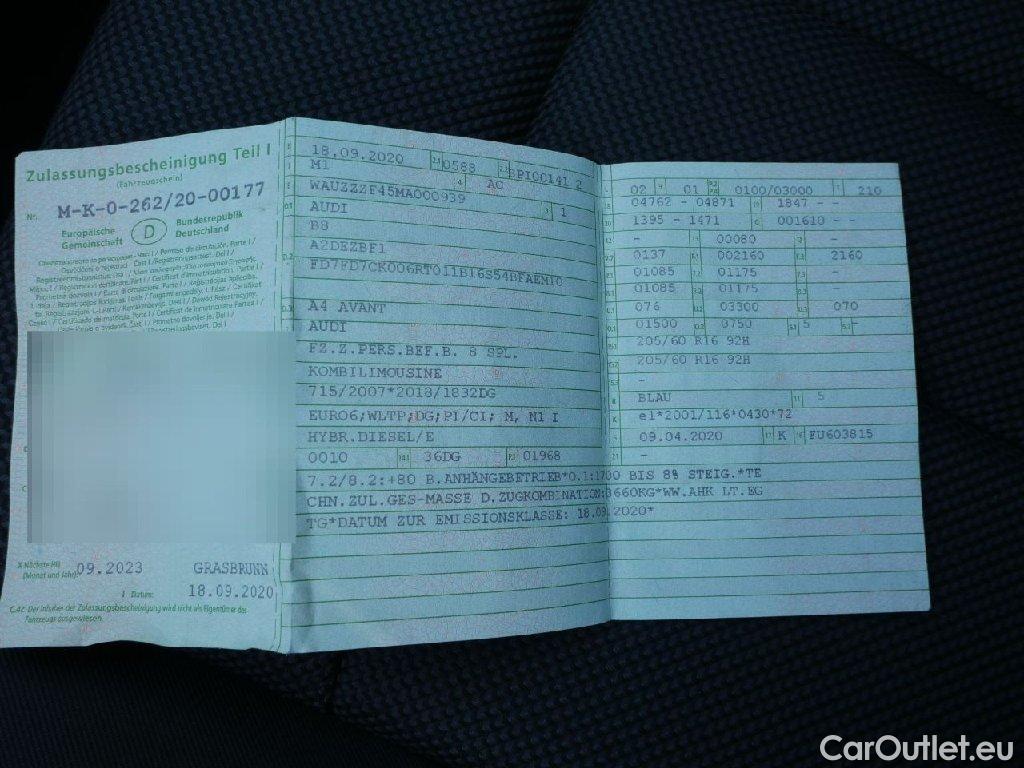 Zulassungsbescheinigung Teil I
(Fahrzeugschein)
Nr. M-K-0-262/20-00177
Europäische Gemeinschaft D Bundesrepublik Deutschland
X Nächste HU (Monat und Jahr): 09.2023 GRASBRUNN
I Datum: 18.09.2020
C.4c Der Inhaber der Zulassungsbescheinigung wird nicht als Eigentümer des
Fahrzeugs ausgewiesen.
18.09.2020 0588
M1 AC
WAUZZZF45MA000939 1
AUDI
B8
A2DEZBF1
A4 AVANT
AUDI
FZ.Z.PERS.BEF.B. 8 SPL.
KOMBILIMOUSINE
715/2007*2018/1832DG
EURO6;WLTP;DG;PI/CI; M, N1 I
HYBR.DIESEL/E
0010 36DG 01968
7.2/8.2:+80 B.ANHÄNGEBETRIEB*O.1:1700 BIS 8% STEIG.*TE
CHN.ZUL.GES-MASSE D.ZUGKOMBINATION:3660KG*WW.AHK LT.EG
TG*DATUM ZUR EMISSIONSKLASSE: 18.09.2020*
02 01 0100/03000 210
04762 - 04871 1847 - -
1395 - 1471 001610 - -
- 00080 -
0137 002160 2160
01085 01175 -
01085 01175 -
076 03300 070
01500 0750 5 -
205/60 R16 92H
205/60 R16 92H
-
BLAU 5
e1*2001/116*0430*72
09.04.2020 K FU603815
-
CarOutlet.eu